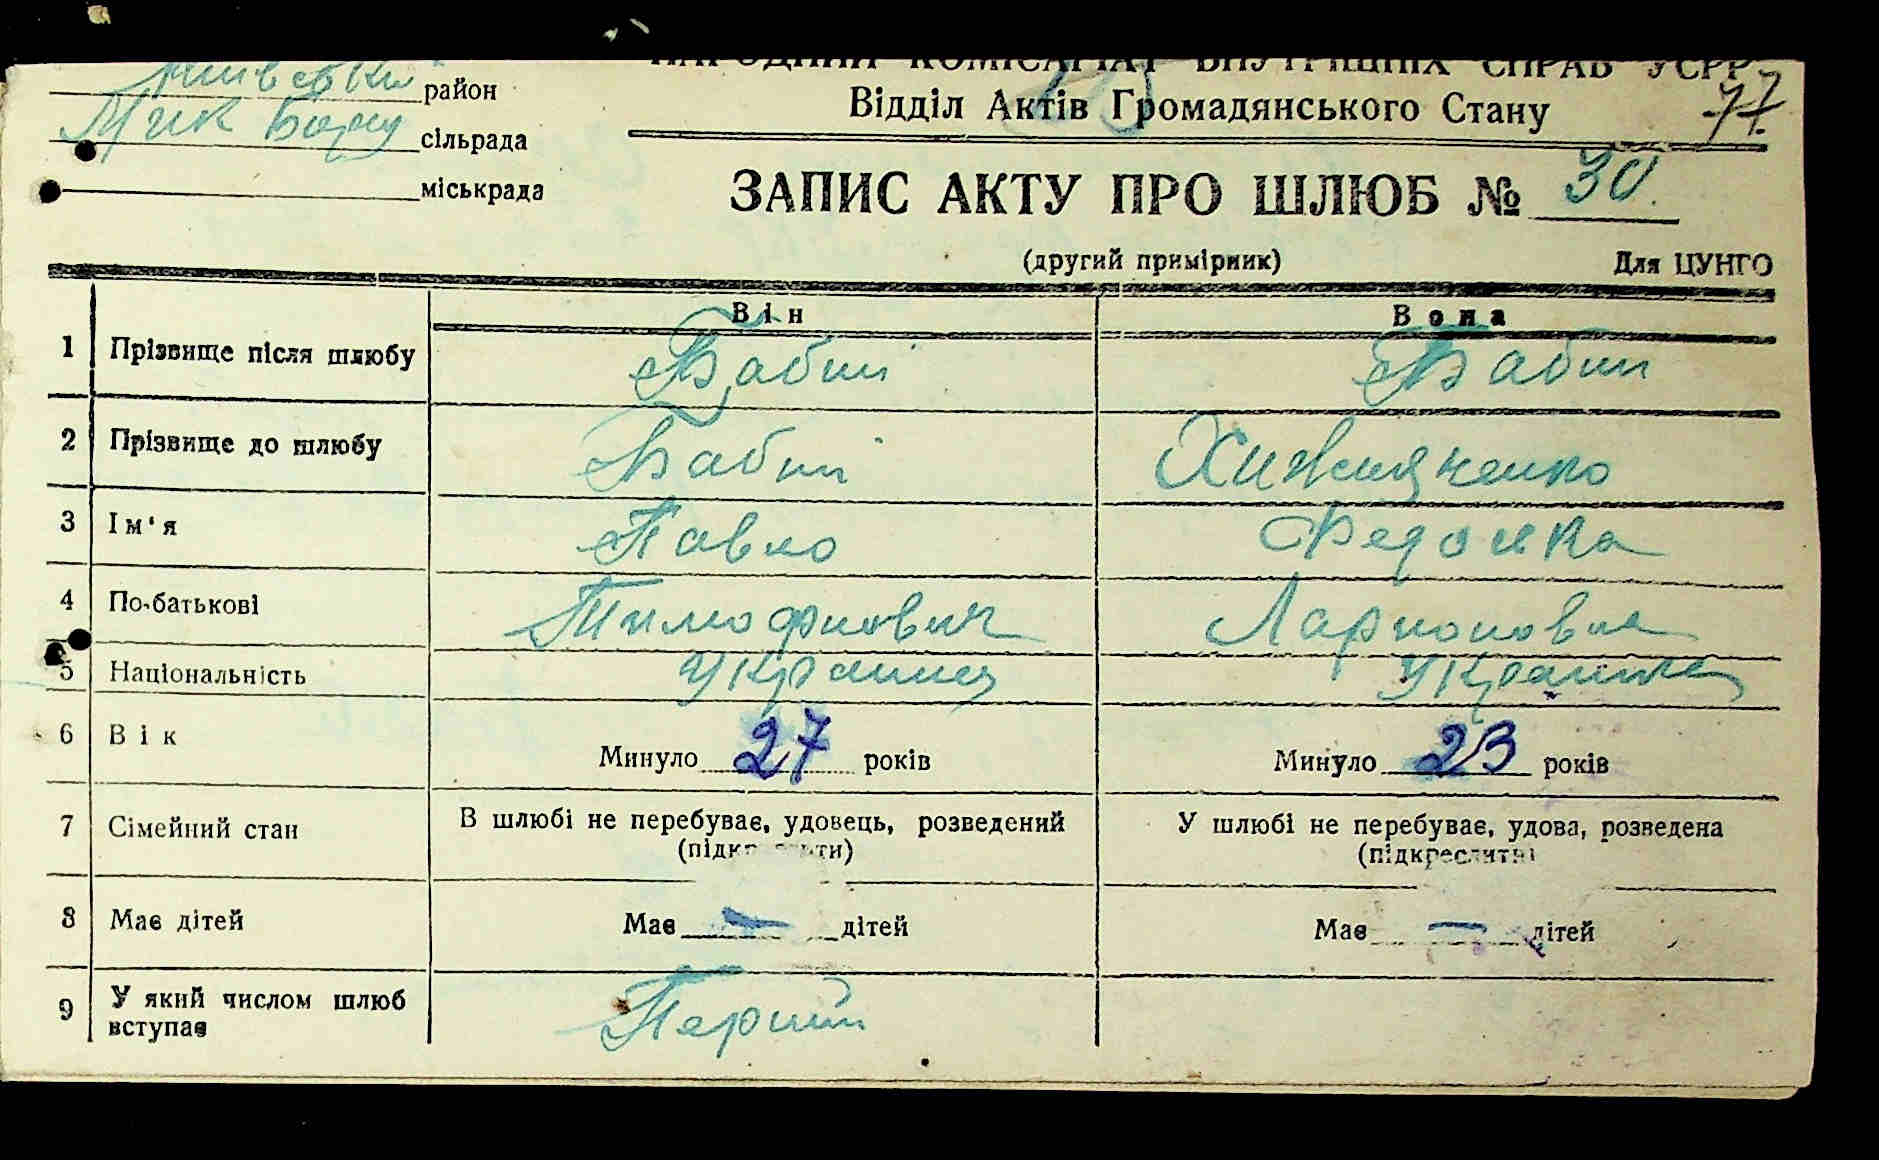 район
НАРОДНИЙ КОМІСАРІАТ ВНУТРІШНІХ СПРАВ УСРР
77
Відділ Актів Громадянського Стану
сільрада
міськрада
ЗАПИС АКТУ ПРО ШЛЮБ № 30.
(другий примірник) Для ЦУНГО
Він Вона
1 Прізвище після шлюбу Бабий Бабий
2 Прізвище до шлюбу Бабий
3 Ім'я Павло
4 По-батькові Тимофиович Ларионовна
5 Національність Украинец Украинка
6 Вік Минуло 27 років Минуло 23 років
7 Сімейний стан В шлюбі не перебуває, удовець, розведений У шлюбі не перебуває, удова, розведена
(підкреслити) (підкреслити)
8 Має дітей Має — дітей Має — дітей
9 У який числом шлюб вступає Перший